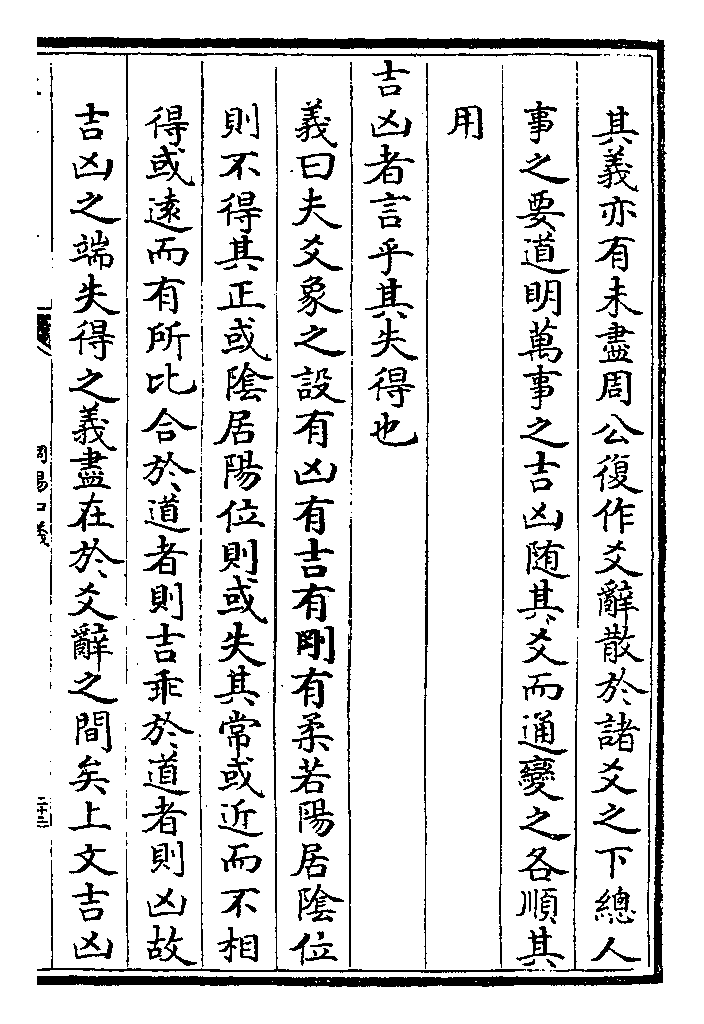 其義亦有未盡周公復作爻辭散於諸爻之下總人
事之要道明萬事之吉凶随其爻而通變之各順其
用
吉凶者言乎其失得也
義曰夫爻象之設有凶有吉有剛有柔若陽居陰位
則不得其正或陰居陽位則或失其常或近而不相
得或遠而有所比合於道者則吉乖於道者則凶故
吉凶之端失得之義盡在於爻辭之間矣上文吉凶